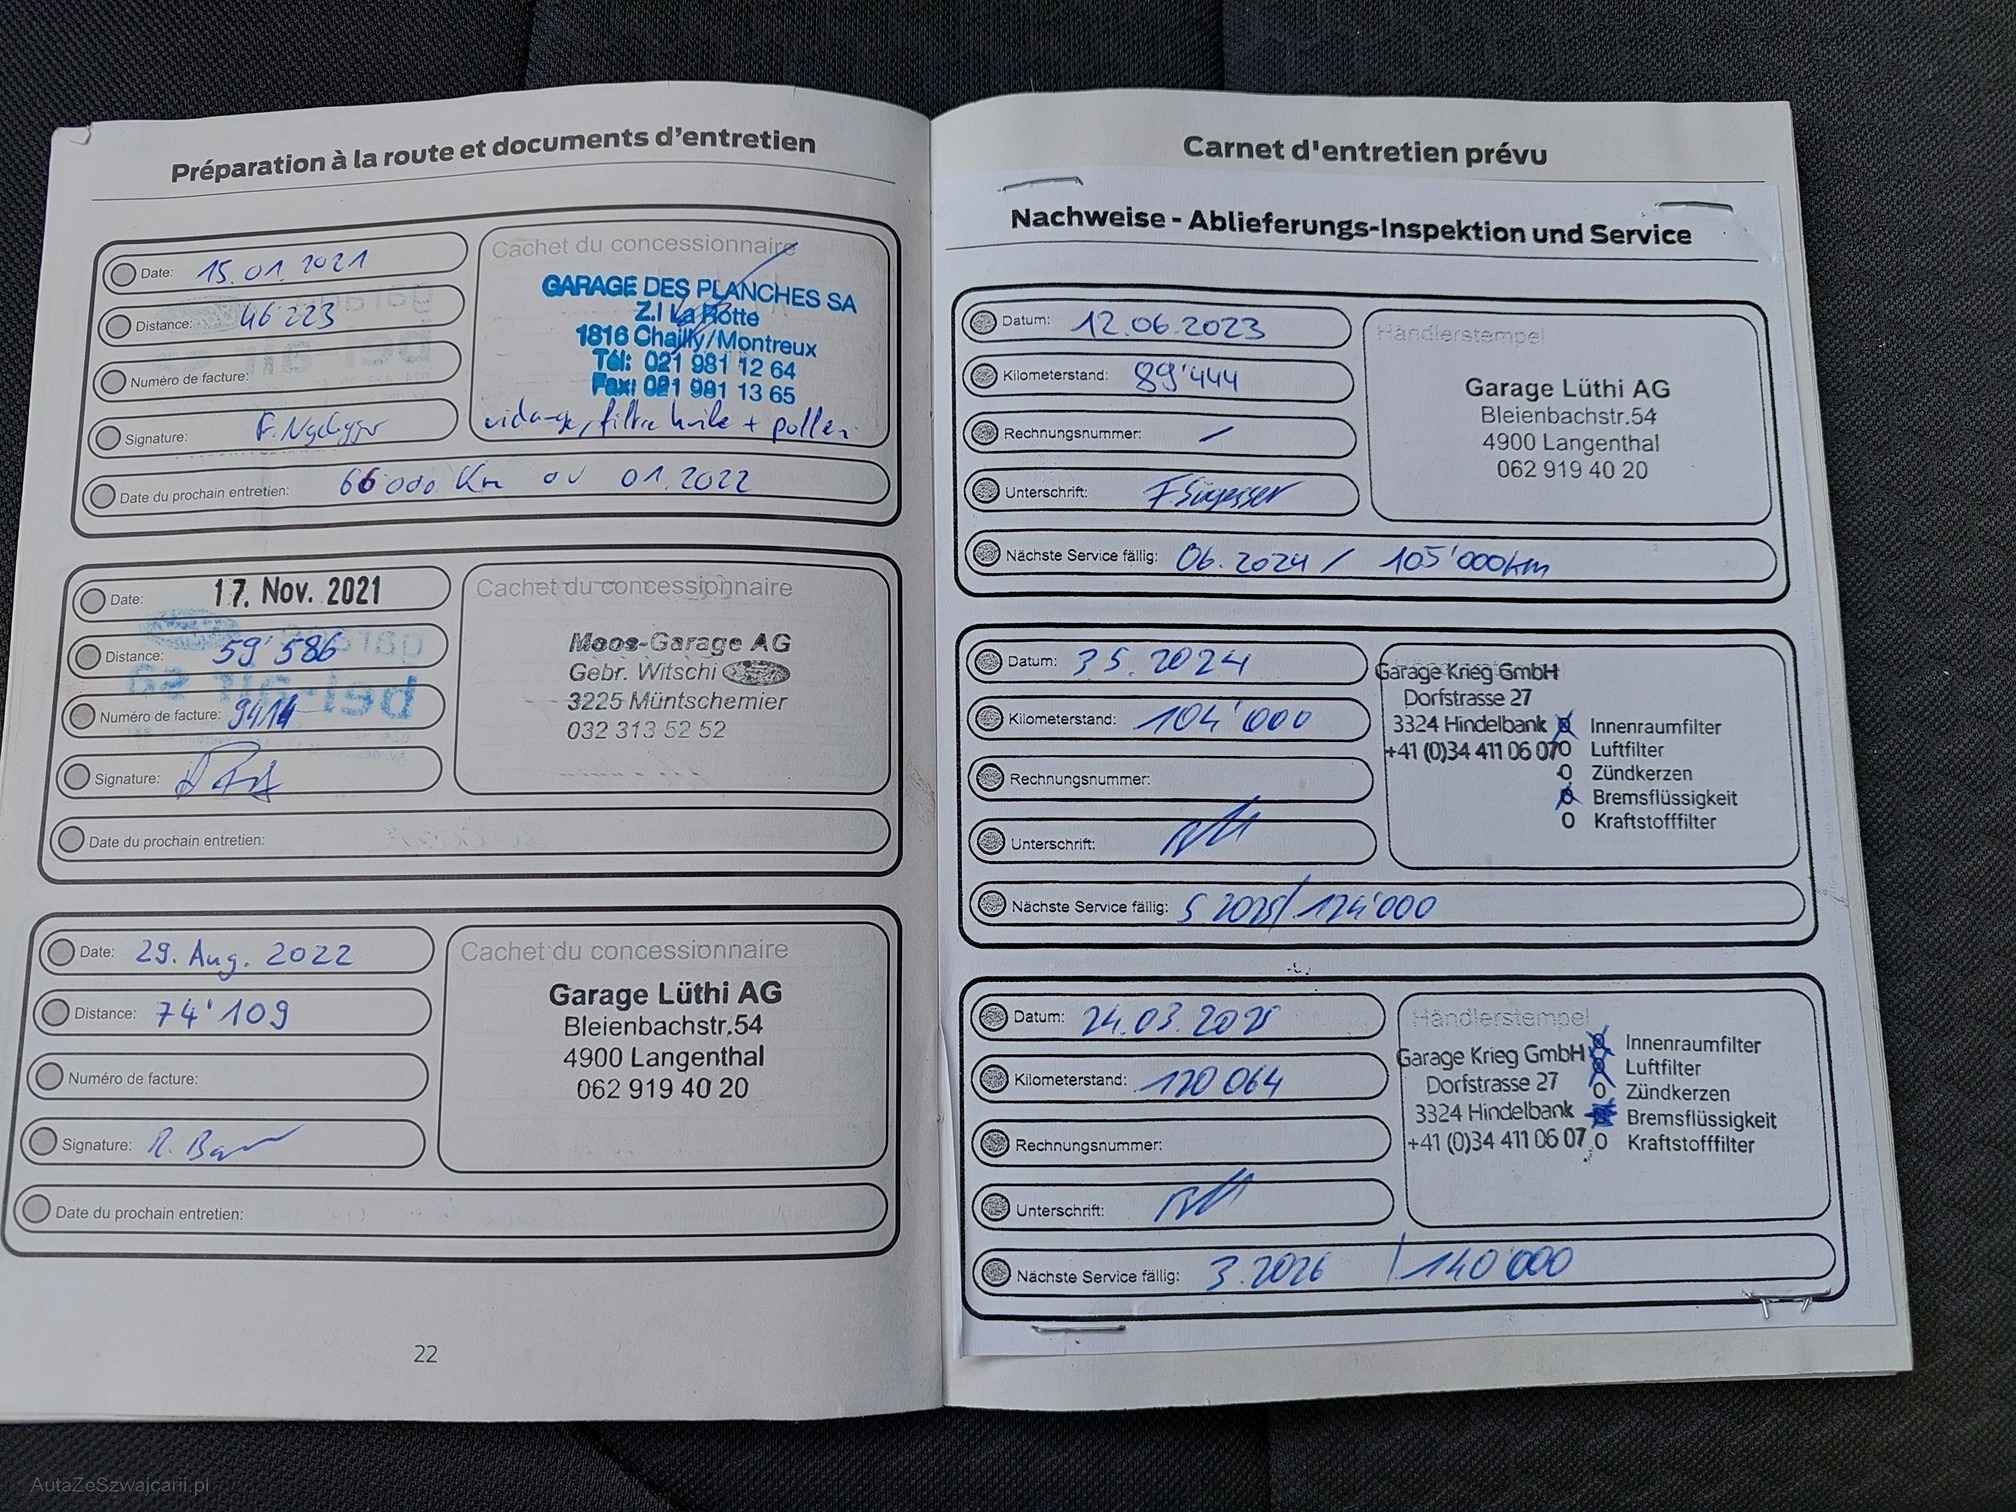 Préparation à la route et documents d'entretien
Date: 15.01.2021
Distance: 46'223
Numéro de facture:
Signature:
Cachet du concessionnaire
GARAGE DES PLANCHES SA
Z.I La Rotte
1816 Chailly/Montreux
Tél: 021 981 12 64
Fax: 021 981 13 65
vidange, filtre huile + pollen
Date du prochain entretien: 66'000 Km ou 01.2022
Date: 17. Nov. 2021
Distance: 59'586
Numéro de facture: 9414
Signature:
Cachet du concessionnaire
Moos-Garage AG
Gebr. Witschi
3225 Müntschemier
032 313 52 52
Date du prochain entretien:
Date: 29. Aug. 2022
Distance: 74'109
Numéro de facture:
Signature:
Cachet du concessionnaire
Garage Lüthi AG
Bleienbachstr.54
4900 Langenthal
062 919 40 20
Date du prochain entretien:
22
Carnet d'entretien prévu
Nachweise - Ablieferungs-Inspektion und Service
Datum: 12.06.2023
Kilometerstand: 89'444
Rechnungsnummer: /
Unterschrift:
Händlerstempel
Garage Lüthi AG
Bleienbachstr.54
4900 Langenthal
062 919 40 20
Nächste Service fällig: 06.2024 / 105'000km
Datum: 3.5.2024
Kilometerstand: 104'000
Rechnungsnummer:
Unterschrift:
Garage Krieg GmbH
Dorfstrasse 27
3324 Hindelbank
+41 (0)34 411 06 07
Innenraumfilter
O Luftfilter
O Zündkerzen
Bremsflüssigkeit
O Kraftstofffilter
Nächste Service fällig: 5 2025/ 124'000
Datum: 24.03.2025
Kilometerstand: 120 064
Rechnungsnummer:
Unterschrift:
Händlerstempel
Garage Krieg GmbH
Dorfstrasse 27
3324 Hindelbank
+41 (0)34 411 06 07
Innenraumfilter
Luftfilter
O Zündkerzen
Bremsflüssigkeit
O Kraftstofffilter
Nächste Service fällig: 3.2026 / 140'000
AutaZeSzwajcarii.pl